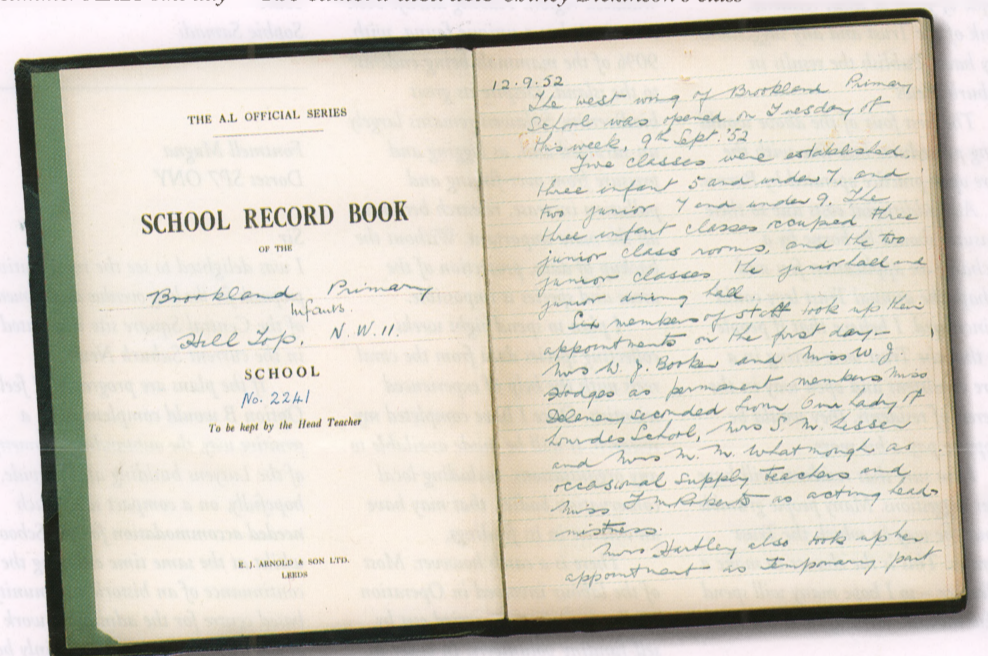 THE A.L OFFICIAL SERIES
SCHOOL RECORD BOOK
OF THE
Brookland Primary
Infants
Hill Top, N.W.11.
SCHOOL
No. 2241
To be kept by the Head Teacher
E. J. ARNOLD & SON LTD.
LEEDS
12.9.52
The west wing of Brookland Primary
School was opened on Tuesday of
this week, 9th Sept. '52
Five classes were established,
three infant 5 and under 7, and
two junior 7 and under 9. The
three infant classes occupied three
junior class rooms, and the two
junior classes the junior hall and
junior dining hall.
Six members of staff took up their
appointments on the first day,
Mrs W. J. Booker and Miss W. J.
Hodges as permanent members Miss
Delaney seconded from Our Lady of
Lourdes School, Mrs S. M. Lesser
and Mrs M. M. Whatmough as
occasional supply teachers and
Miss F. M. Roberts as acting head-
mistress.
Mrs Hartley also took up her
appointment as temporary part